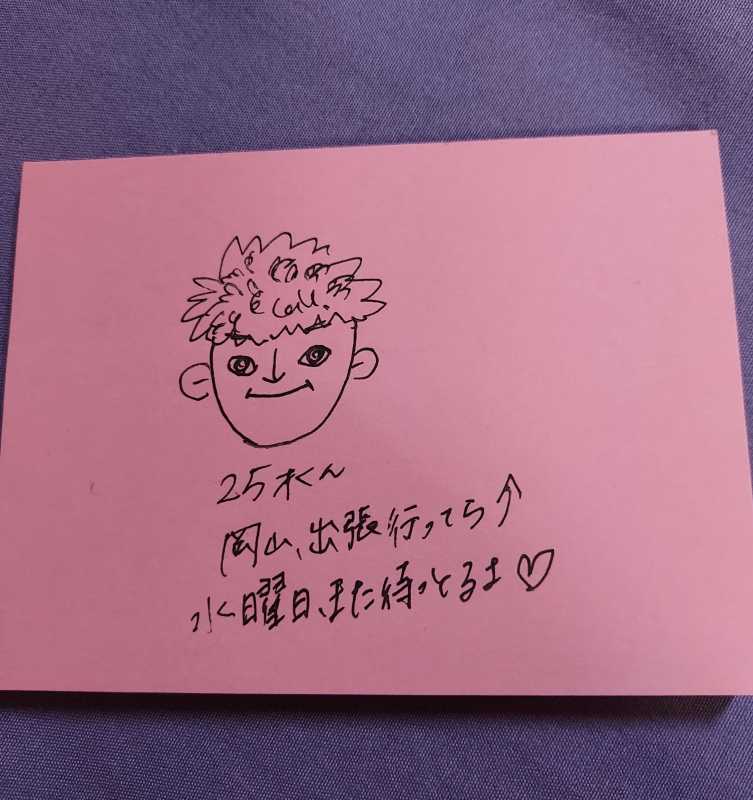 25才くん
岡山、出張行ってら↑
水曜日、また待っとるよ♡